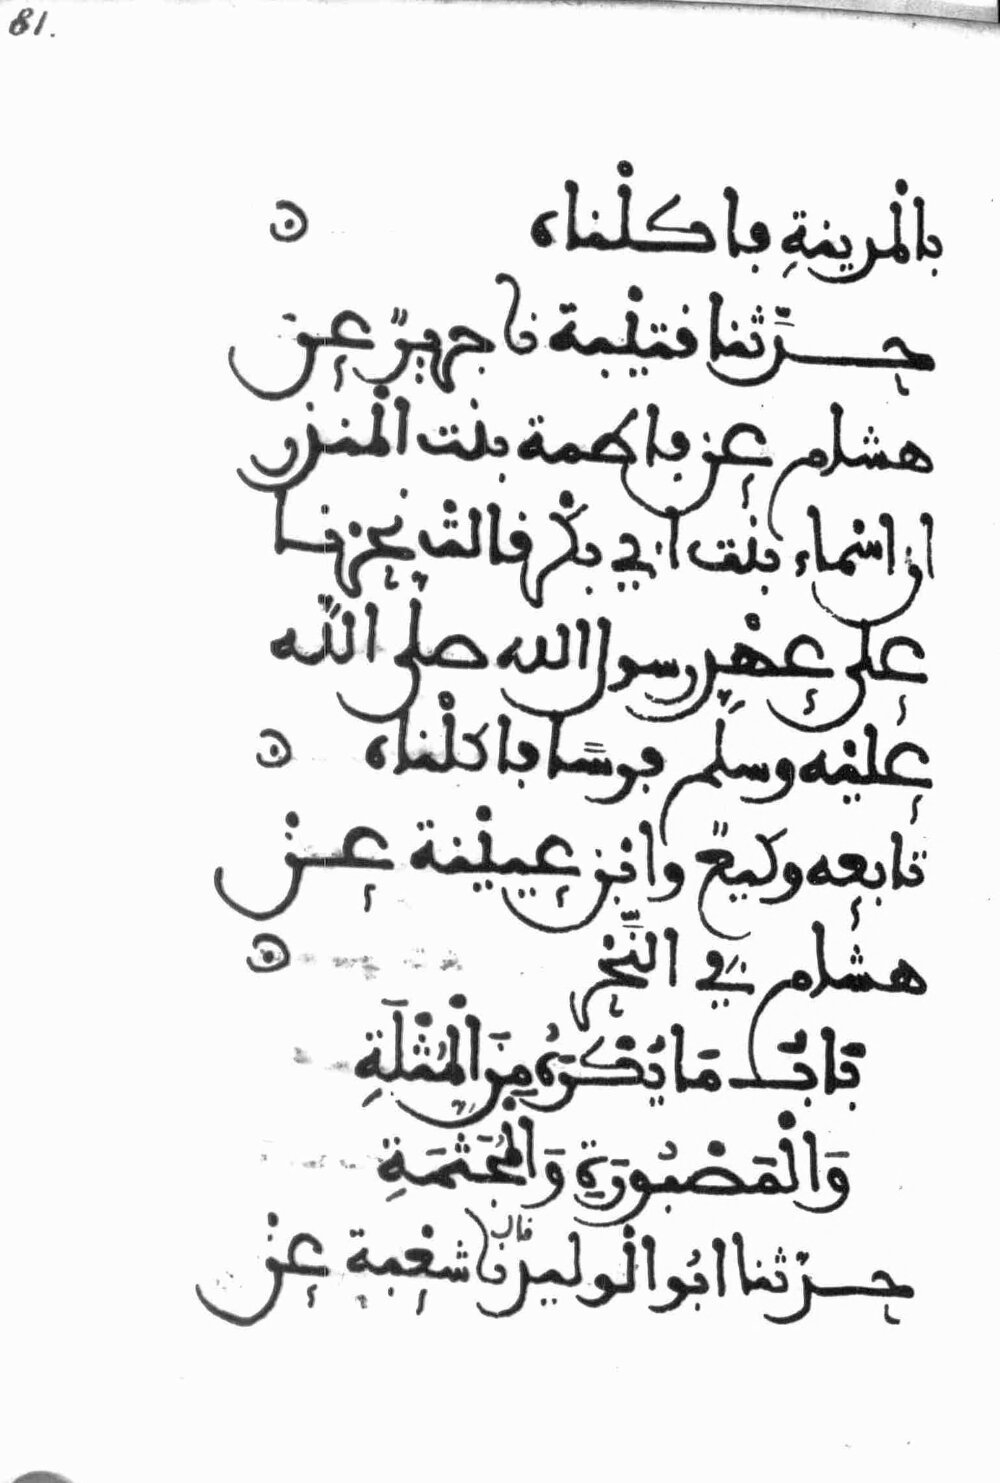 81.
بالمدينة فاكلناه
حدثنا قتيبة نا جرير عن
هشام عن فاطمة بنت المنذر
ان اسماء بنت ابي بكر قالت نحرنا
على عهد رسول الله صلى الله
عليه وسلم فرسا فاكلناه
تابعه وكيع وابن عيينة عن
هشام في النحر
بَابُ مَا يُكْرَهُ مِنَ الْمُثْلَةِ
وَالْمَصْبُورَةِ وَالْمُجَثَّمَةِ
حدثنا ابو الوليد قال نا شعبة عن